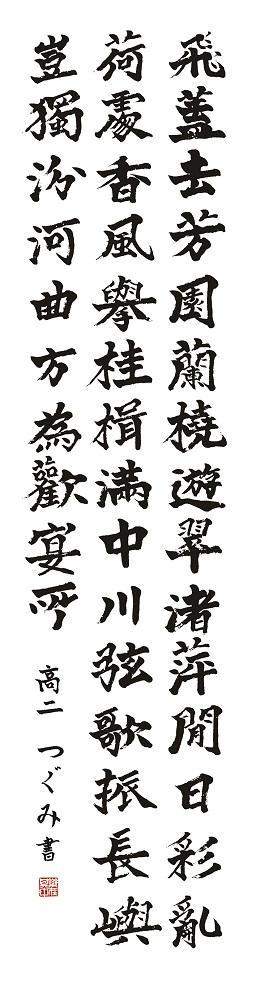 飛蓋去芳園蘭橈遊翠渚萍間日彩亂
荷處香風擧桂楫滿中川弦歌振長嶼
豈獨汾河曲方為歡宴所
高二 つぐみ書